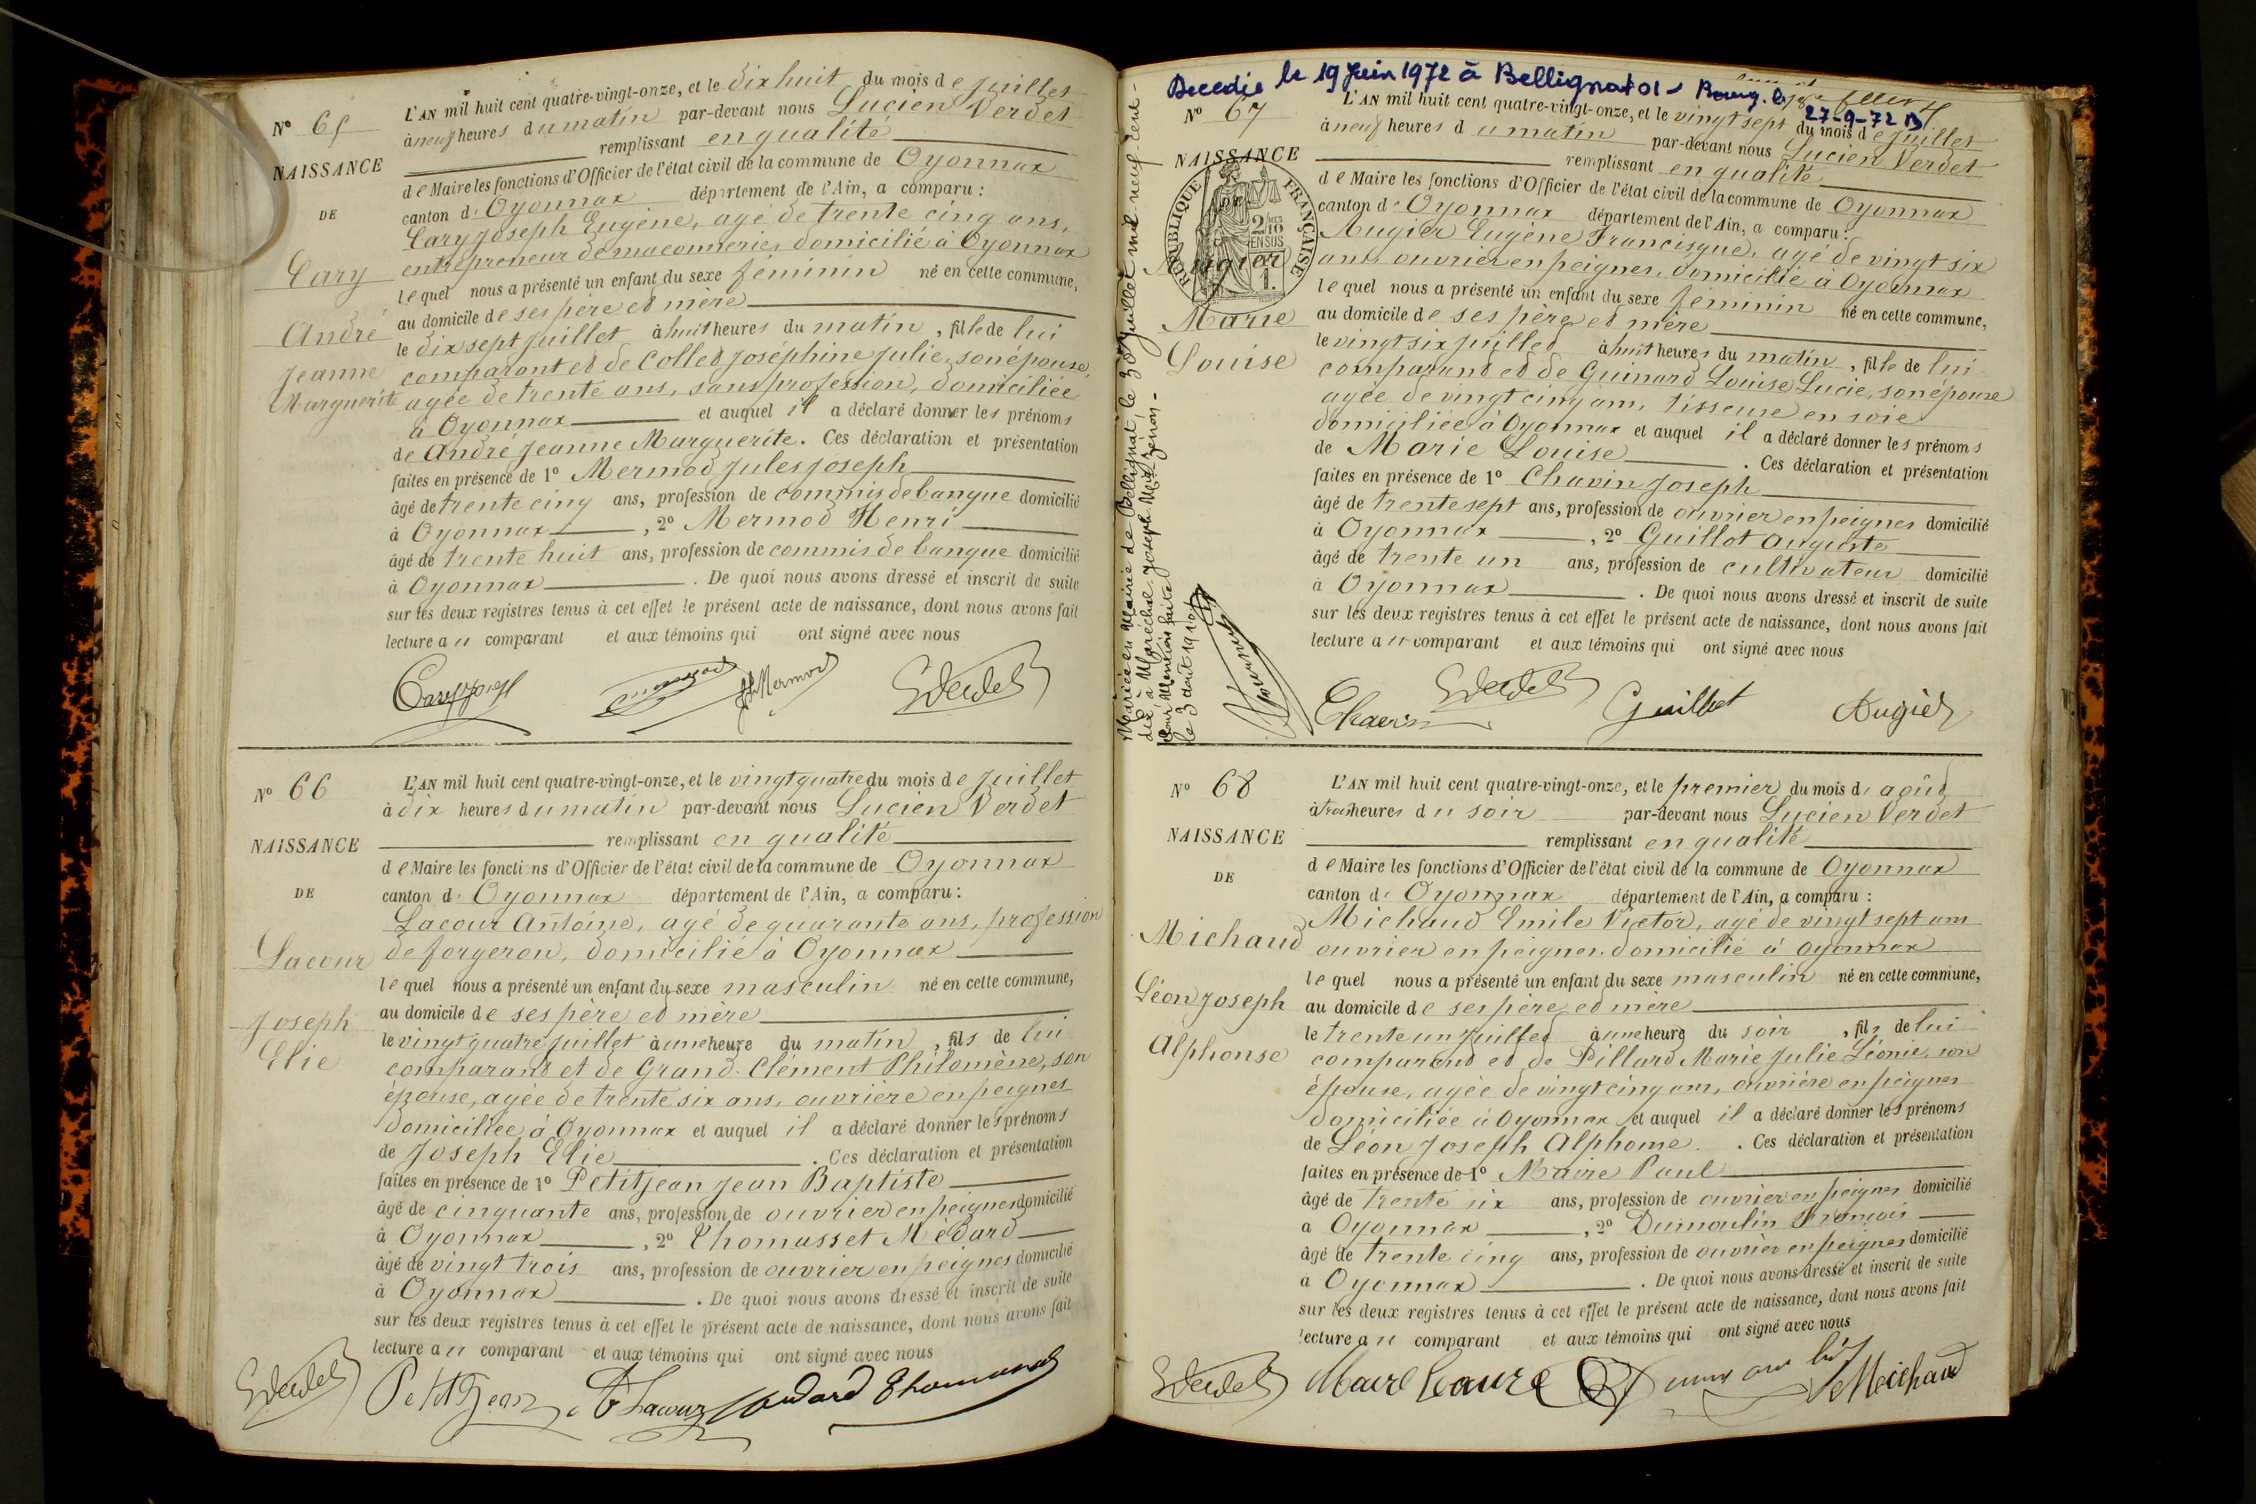 N° 65
NAISSANCE
DE
Cary
André
Jeanne
Marguerite
L'AN mil huit cent quatre-vingt-onze, et le dix huit du mois de juillet
à neuf heures du matin par-devant nous Lucien Verdet
remplissant en qualité
de Maire les fonctions d'Officier de l'état civil de la commune de Oyonnax
canton d' Oyonnax département de l'Ain, a comparu :
Cary Joseph Eugène, agé de trente cinq ans,
entrepreneur de maconnerie, domicilié à Oyonnax
le quel nous a présenté un enfant du sexe féminin né en cette commune,
au domicile de ses père et mère
le dix sept juillet à huit heures du matin, fille de lui
comparant et de Collet Joséphine Julie, son épouse,
agée de trente ans, sans profession, domiciliée
à Oyonnax et auquel il a déclaré donner les prénoms
de André Jeanne Marguerite. Ces déclaration et présentation
faites en présence de 1° Mermod Jules Joseph
âgé de trente cinq ans, profession de commis de banque domicilié
à Oyonnax, 2° Mermod Henri
âgé de trente huit ans, profession de commis de banque domicilié
à Oyonnax. De quoi nous avons dressé et inscrit de suite
sur les deux registres tenus à cet effet le présent acte de naissance, dont nous avons fait
lecture au comparant et aux témoins qui ont signé avec nous
Mermod
N° 66
NAISSANCE
DE
Lacour
Joseph
Elie
L'AN mil huit cent quatre-vingt-onze, et le vingt quatre du mois de juillet
à dix heures du matin par-devant nous Lucien Verdet
remplissant en qualité
de Maire les fonctions d'Officier de l'état civil de la commune de Oyonnax
canton d' Oyonnax département de l'Ain, a comparu :
Lacour Antoine, agé de quarante ans, profession
de forgeron, domicilié à Oyonnax
le quel nous a présenté un enfant du sexe masculin né en cette commune,
au domicile de ses père et mère
le vingt quatre juillet à une heure du matin, fils de lui
comparant et de Grand-Clément Philomène, son
épouse, agée de trente six ans, ouvrière en peignes
domiciliée à Oyonnax et auquel il a déclaré donner les prénoms
de Joseph Elie. Ces déclaration et présentation
faites en présence de 1° Petitjean Jean Baptiste
âgé de cinquante ans, profession de ouvrier en peignes domicilié
à Oyonnax, 2° Thomasset Médard
âgé de vingt trois ans, profession de ouvrier en peignes domicilié
à Oyonnax. De quoi nous avons dressé et inscrit de suite
sur les deux registres tenus à cet effet le présent acte de naissance, dont nous avons fait
lecture au comparant et aux témoins qui ont signé avec nous
Petitjean Lacour
Décédée le 19 Juin 1972 à Bellignat 01 - Bourg. le
27-9-72
N° 67
NAISSANCE
RÉPUBLIQUE FRANÇAISE
2/10
EN SUS
Augier
Marie
Louise
Mariée en Mairie de Bellignat, le 30 juillet mil neuf cent
dix à Maréchal Joseph Marie Zénon -
Pour mention faite
le 3 août 1910
L'AN mil huit cent quatre-vingt-onze, et le vingt sept du mois de juillet
à neuf heures du matin par-devant nous Lucien Verdet
remplissant en qualité
de Maire les fonctions d'Officier de l'état civil de la commune de Oyonnax
canton d' Oyonnax département de l'Ain, a comparu :
Augier Eugène Francisque, agé de vingt six
ans, ouvrier en peignes, domicilié à Oyonnax
le quel nous a présenté un enfant du sexe féminin né en cette commune,
au domicile de ses père et mère
le vingt six juillet à huit heures du matin, fille de lui
comparant et de Guinard Louise Lucie, son épouse
agée de vingt cinq ans, tisseuse en soie
domiciliée à Oyonnax et auquel il a déclaré donner les prénoms
de Marie Louise. Ces déclaration et présentation
faites en présence de 1° Chavin Joseph
âgé de trente sept ans, profession de ouvrier en peignes domicilié
à Oyonnax, 2° Guillot Auguste
âgé de trente un ans, profession de cultivateur domicilié
à Oyonnax. De quoi nous avons dressé et inscrit de suite
sur les deux registres tenus à cet effet le présent acte de naissance, dont nous avons fait
lecture au comparant et aux témoins qui ont signé avec nous
Chavin Guillot Augier
N° 68
NAISSANCE
DE
Michaud
Léon Joseph
Alphonse
L'AN mil huit cent quatre-vingt-onze, et le premier du mois d' août
à trois heures du soir par-devant nous Lucien Verdet
remplissant en qualité
de Maire les fonctions d'Officier de l'état civil de la commune de Oyonnax
canton d' Oyonnax département de l'Ain, a comparu :
Michaud Emile Victor, agé de vingt sept ans
ouvrier en peignes, domicilié à Oyonnax
le quel nous a présenté un enfant du sexe masculin né en cette commune,
au domicile de ses père et mère
le trente un juillet à une heure du soir, fils de lui
comparant et de Pillard Marie Julie Léonie, son
épouse, agée de vingt cinq ans, ouvrière en peignes
domiciliée à Oyonnax et auquel il a déclaré donner les prénoms
de Léon Joseph Alphonse. Ces déclaration et présentation
faites en présence de 1° Maire Paul
âgé de trente six ans, profession de ouvrier en peignes domicilié
a Oyonnax, 2° Dumoulin François
âgé de trente cinq ans, profession de ouvrier en peignes domicilié
a Oyonnax. De quoi nous avons dressé et inscrit de suite
sur les deux registres tenus à cet effet le présent acte de naissance, dont nous avons fait
lecture au comparant et aux témoins qui ont signé avec nous
Michaud